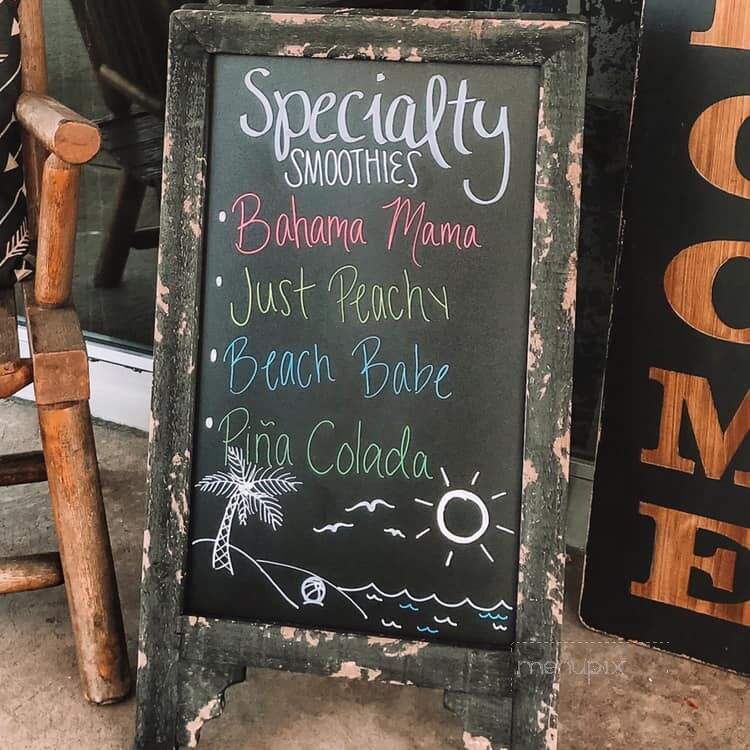 Specialty
SMOOTHIES
• Bahama Mama
• Just Peachy
• Beach Babe
• Piña Colada
COME
menupix